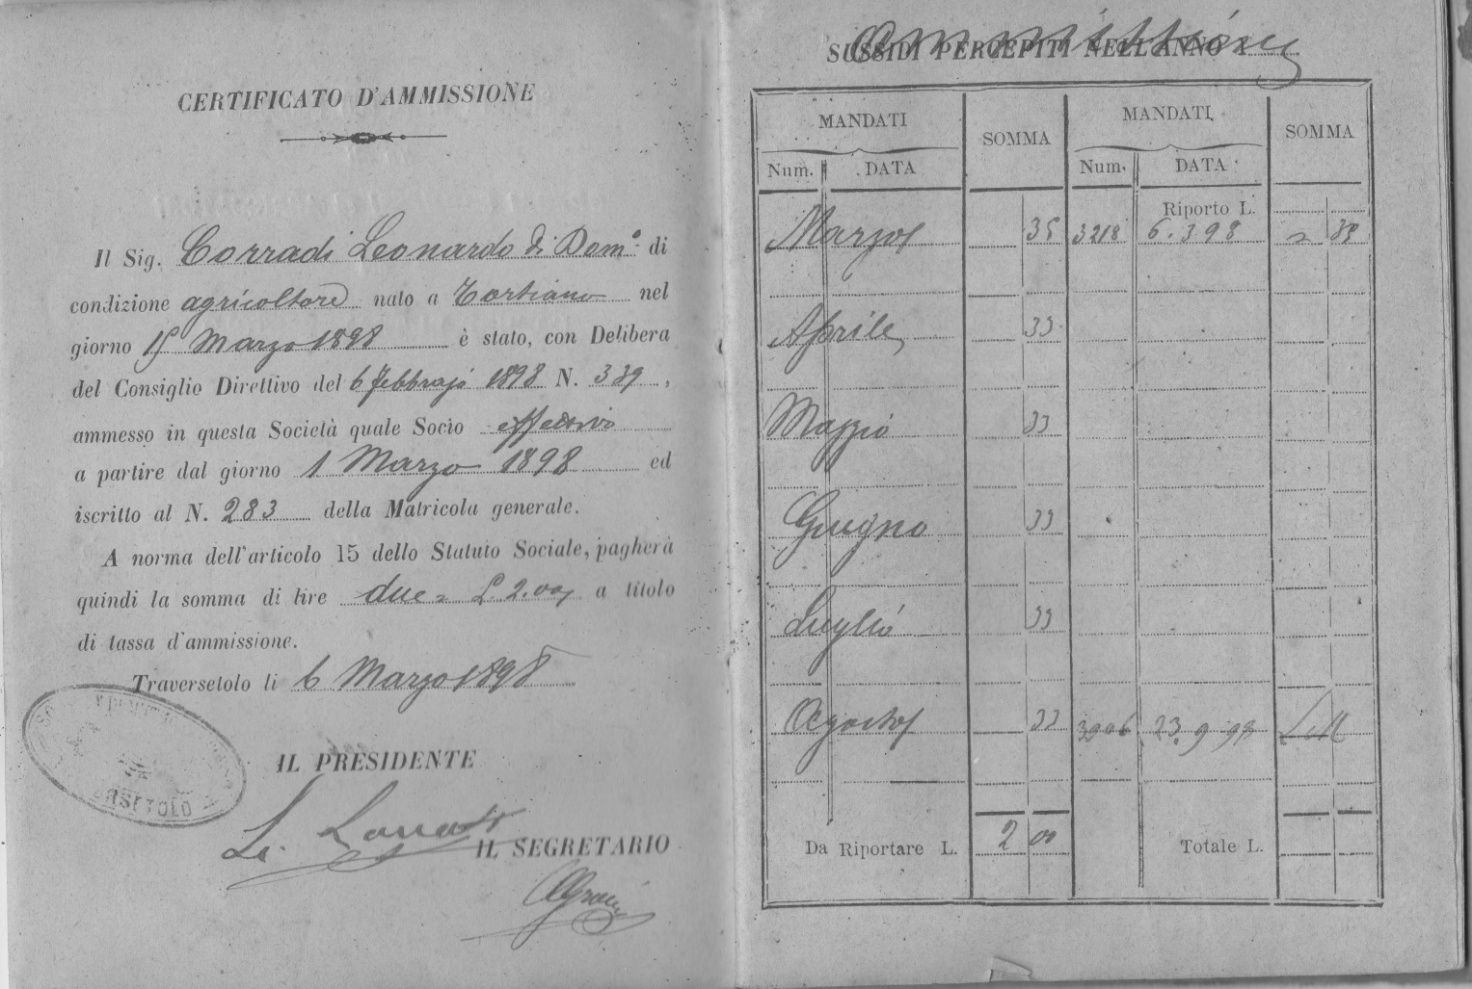 CERTIFICATO D'AMMISSIONE
Il Sig. Corradi Leonardo di Dom.º di
condizione agricoltore nato a Tortiano nel
giorno Marzo 1898 è stato, con Delibera
del Consiglio Direttivo del 6 febbrajo 1898 N. 339,
ammesso in questa Società quale Socio effettivo
a partire dal giorno 1 Marzo 1898 ed
iscritto al N. 283 della Matricola generale.
A norma dell'articolo 15 dello Statuto Sociale, pagherà
quindi la somma di lire due = L. 2.00 a titolo
di tassa d'ammissione.
Traversetolo li 6 Marzo 1898
RSETOLO
IL PRESIDENTE
IL SEGRETARIO
SUSSIDI PERCEPITI NELL'ANNO 1
MANDATI SOMMA MANDATI SOMMA
Num. DATA Num. DATA
Riporto L.
Marzo 35 3218 6.3 98
Aprile 33
Maggio 33
Giugno 33
Luglio 33
Agosto 33 23.9.98
Da Riportare L. 2 00 Totale L.